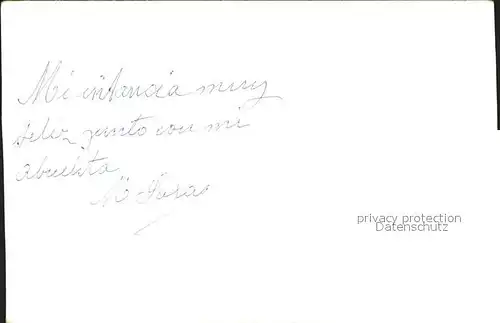 Mi infancia muy
feliz junto con mi
abuelita
Mª
privacy protection
Datenschutz